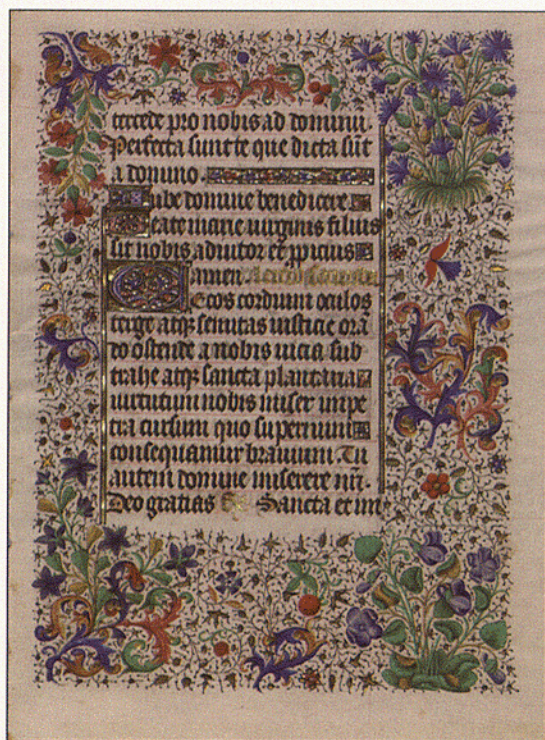 tercede pro nobis ad dominū
Perfecta sunt te que dicta sūt
a domino.
Iube domine benedicere.
Beate marie virginis filius
sit nobis adiutor et ꝓpicius
amen.
Cecos cordium oculos
terge atqꝫ semitas iusticie orā
do ostende a nobis uicia sub
trahe atqꝫ sancta plantaria
uirtutum nobis miser impe
tra cursum quo supernum
consequamur brauium. Tu
autem domine miserere nr̄i.
Deo gratias Sancta et im